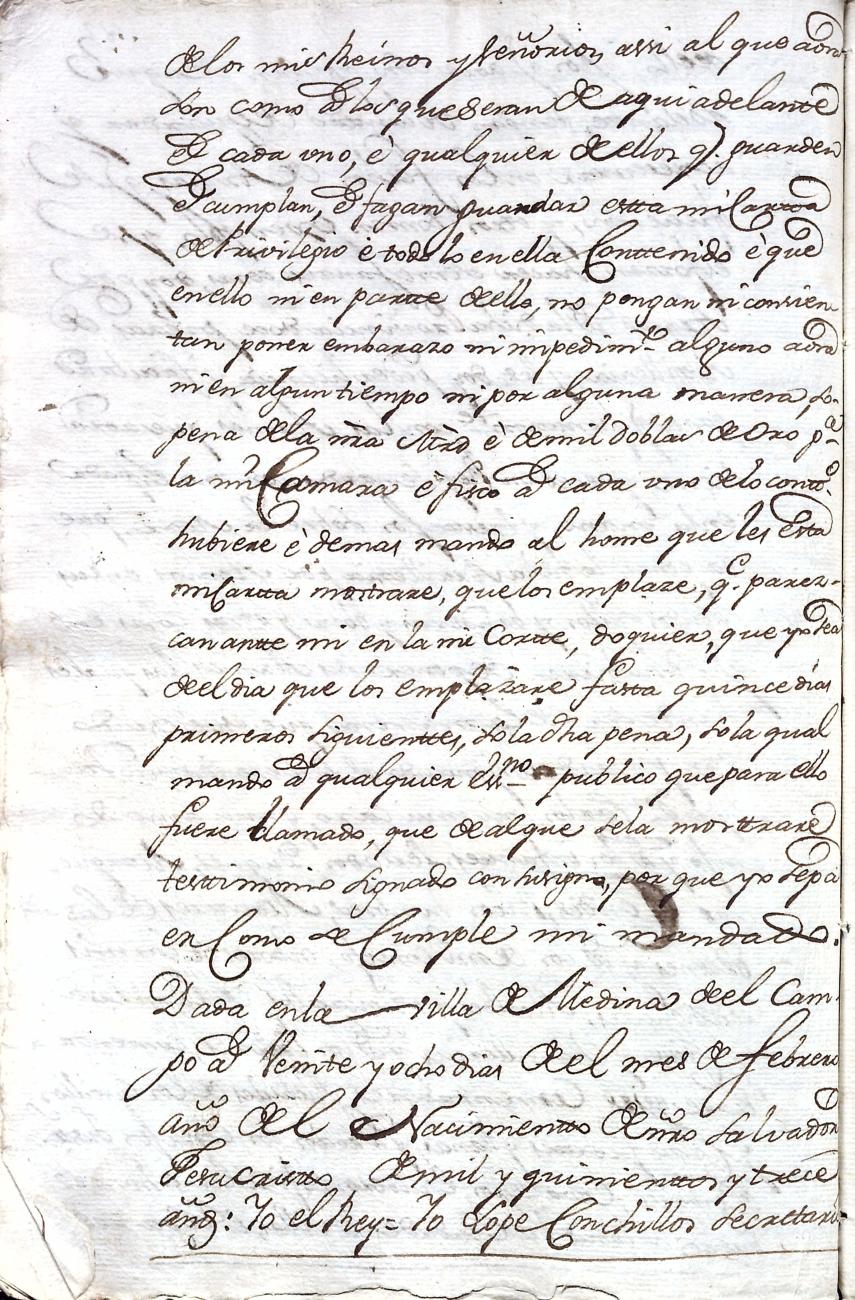 de los mis Reinos y señorios, assi al que aora
son como a los que seran de aqui adelante
è a cada vno, è qualquier de ellos q.e guarden
è cumplan, è fagan guardar estta mi Cartta
de Privilegio è todo lo en ella Conttenido è que
en ello ni en partte de ello, no pongan ni consien-
tan poner embarazo ni impedim.to alguno aora
ni en algun tiempo ni por alguna manera, so-
pena de la ñra Mrd è de mil Doblas de Oro p.a
la mi Camara è fisco a cada vno de lo contt.o
hubiere è demas mando al home que les Esta
mi Cartta mostrare, que los emplaze, q.e parez-
can antte mi en la mi Cortte, doquier, que yo sea
de el dia que los emplazare fasta quince dias
primeros siguienttes, so la dha pena, so la qual
mando a qualquier Ess.no publico que para ello
fuere llamado, que de al que se la mosttrare
testtimonio signado con su signo, por que yo sepa
en Como se Cumple mi mandado.
Dada en la villa de Medina de el Cam-
po a Veinte y ocho dias de el mes de febrero
año de el Nacimientto de ñro Salvador
Jesucristto de mil y quinienttos y trece
años: Yo el Rey= Yo Lope Conchillos Secrettario